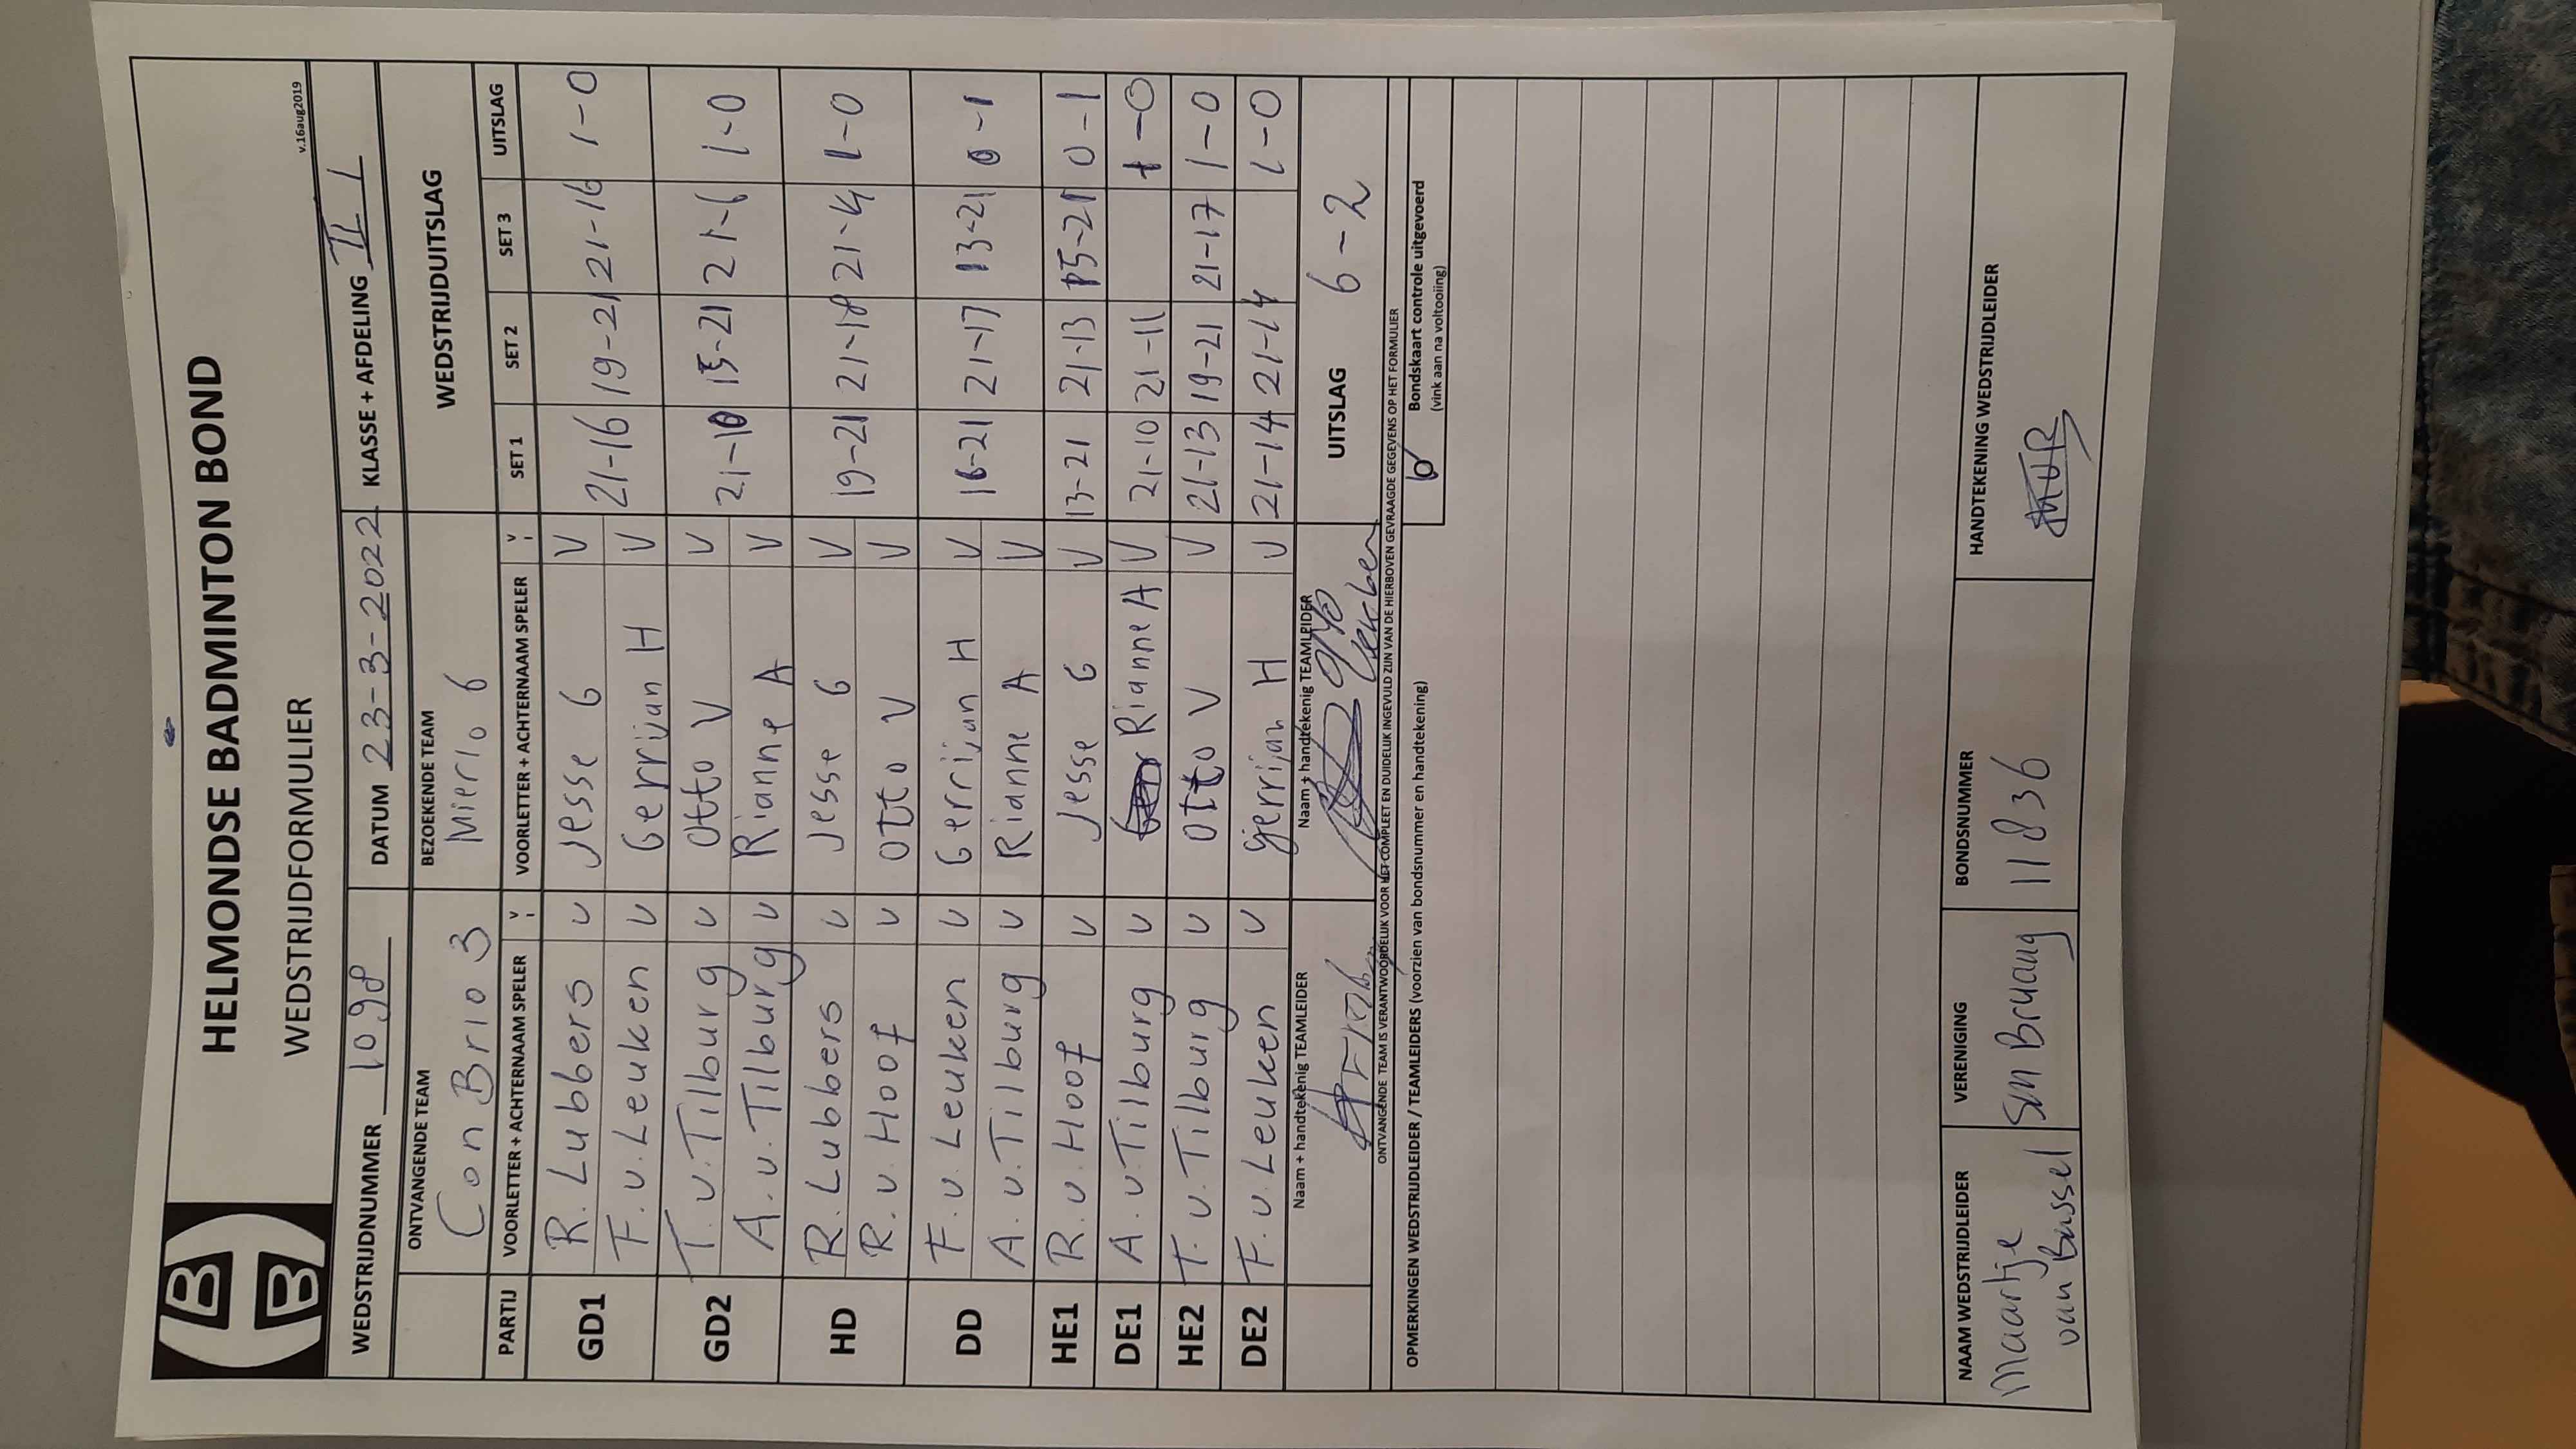 HELMONDSE BADMINTON BOND
WEDSTRIJDFORMULIER
v.16aug2019
WEDSTRIJDNUMMER 1098 DATUM 23-3-2022 KLASSE + AFDELING II 1
ONTVANGENDE TEAM BEZOEKENDE TEAM WEDSTRIJDUITSLAG
Con Brio 3 Mierlo 6
PARTIJ VOORLETTER + ACHTERNAAM SPELER v VOORLETTER + ACHTERNAAM SPELER v SET 1 SET 2 SET 3 UITSLAG
GD1 R. Lubbers v Jesse G V 21-16 19-21 21-16 1-0
F. v. Leuken v Gerrijan H V
GD2 T. v. Tilburg v Otto V V 21-10 15-21 21-6 1-0
A. v. Tilburg v Rianne A V
HD R. Lubbers v Jesse G V 19-21 21-18 21-4 1-0
R. v. Hoof v Otto V V
DD F. v. Leuken v Gerrijan H V 16-21 21-17 13-21 0-1
A. v. Tilburg v Rianne A V
HE1 R. v. Hoof v Jesse G V 13-21 21-13 15-21 0-1
DE1 A. v. Tilburg v Rianne A V 21-10 21-11 1-0
HE2 T. v. Tilburg v Otto V V 21-13 19-21 21-17 1-0
DE2 F. v. Leuken v Gerrijan H v 21-14 21-14 1-0
Naam + handtekenig TEAMLEIDER Naam + handtekenig TEAMLEIDER UITSLAG 6-2
ONTVANGENDE TEAM IS VERANTWOORDELIJK VOOR HET COMPLEET EN DUIDELIJK INGEVULD ZIJN VAN DE HIERBOVEN GEVRAAGDE GEGEVENS OP HET FORMULIER
OPMERKINGEN WEDSTRIJDLEIDER / TEAMLEIDERS (voorzien van bondsnummer en handtekening)
Bondskaart controle uitgevoerd
(vink aan na voltooiing)
NAAM WEDSTRIJDLEIDER VERENIGING BONDSNUMMER HANDTEKENING WEDSTRIJDLEIDER
Maartje
van Bussel 11836